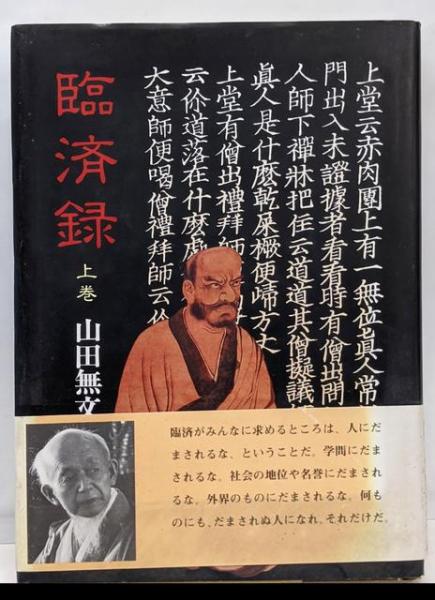 臨済録
上巻
山田無文
上堂云赤肉團上有一無位眞人常
門出入未證據者看看時有僧出問
人師下禪牀把住云道道其僧擬議
眞人是什麼乾屎橛便歸方丈
上堂有僧出禮拜師
云伱道落在什麼處
大意師便喝僧禮拜師云伱
臨済がみんなに求めるところは、人にだ
まされるな、ということだ。学問にだま
されるな。社会の地位や名誉にだまされ
るな。外界のものにだまされるな。何も
のにも、だまされぬ人になれ、それだけだ。